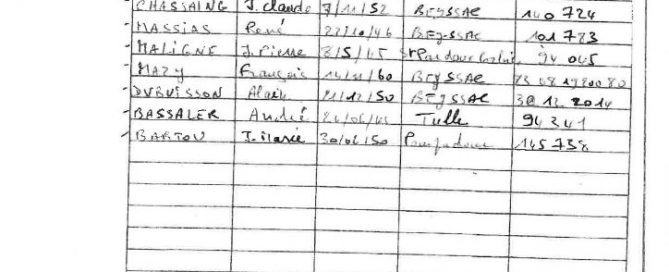 CHASSAING J. Claude 7/11/52 BEYSSAC 140 724
MASSIAS René 22/10/46 BEYSSAC 101 783
MALIGNE J. Pierre 8/5/45 St Pardoux 94 045
MAZY François /60 BEYSSAC
DUBUISSON Alain 21/12/50 BEYSSAC 30 12 2014
BASSALER André Tulle 94 341
BARTOU J. Marie 30/06/50 Pompadour 145 738